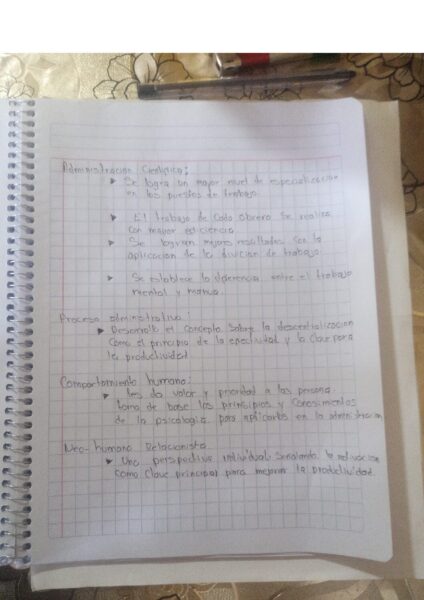 Administracion Cientifica:
Se logra un mayor nivel de especializacion
en los puestos de trabajo.
El trabajo de cada obrero se realiza
con mayor eficiencia
Se logran mejores resultados con la
aplicacion de la division de trabajo
Se establece la diferencia entre el trabajo
mental y manual
Proceso administrativo:
Desarrollo el concepto sobre la descentralizacion
como el principio de la efectividad y la clave para
la productividad
Comportamiento humano:
les da valor y prioridad a las persona
toma de base los principios y conocimientos
de la psicologia para aplicarlos en la administracion
Neo-humano Relacionista
Una perspectiva individual señalando la motivacion
como clave principal para mejorar la productividad.